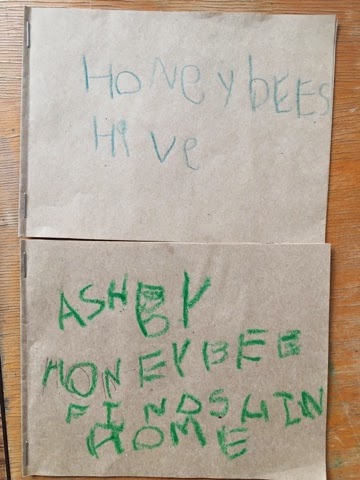 HoneybEES
Hi ve
ASHBY
HONEYBEE
FINDS HIN
HOME